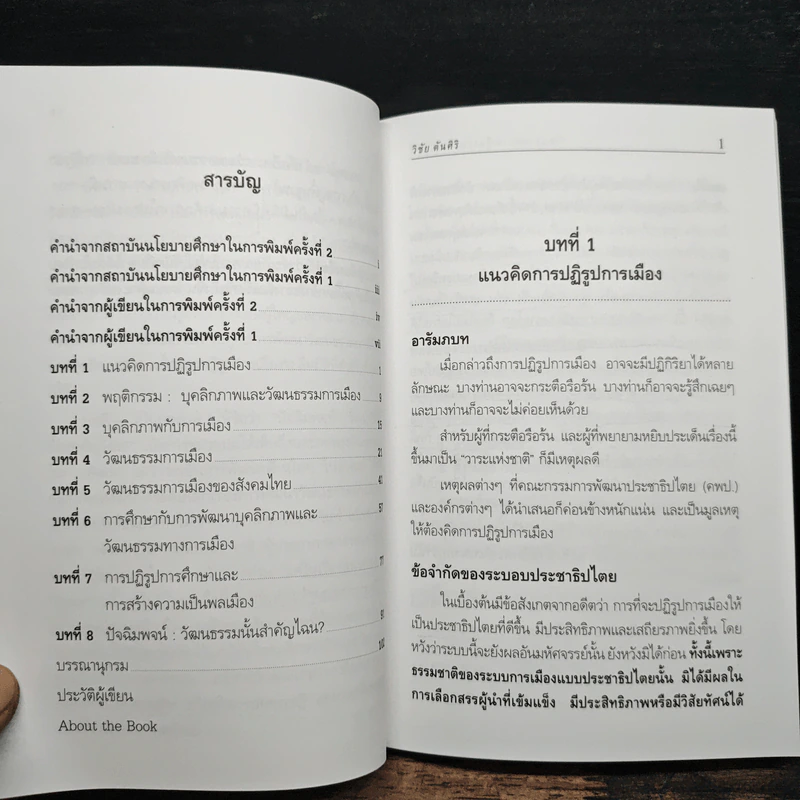 สารบัญ
คำนำจากสถาบันนโยบายศึกษาในการพิมพ์ครั้งที่ 2 i
คำนำจากสถาบันนโยบายศึกษาในการพิมพ์ครั้งที่ 1 iii
คำนำจากผู้เขียนในการพิมพ์ครั้งที่ 2 iv
คำนำจากผู้เขียนในการพิมพ์ครั้งที่ 1 vii
บทที่ 1 แนวคิดการปฏิรูปการเมือง 1
บทที่ 2 พฤติกรรม : บุคลิกภาพและวัฒนธรรมการเมือง 9
บทที่ 3 บุคลิกภาพกับการเมือง 15
บทที่ 4 วัฒนธรรมการเมือง 21
บทที่ 5 วัฒนธรรมการเมืองของสังคมไทย 40
บทที่ 6 การศึกษากับการพัฒนาบุคลิกภาพและ 57
วัฒนธรรมทางการเมือง
บทที่ 7 การปฏิรูปการศึกษาและ 77
การสร้างความเป็นพลเมือง
บทที่ 8 ปัจฉิมพจน์ : วัฒนธรรมนั้นสำคัญไฉน? 91
บรรณานุกรม 102
ประวัติผู้เขียน
About the Book
วิชัย ตันศิริ 1
บทที่ 1
แนวคิดการปฏิรูปการเมือง
อารัมภบท
เมื่อกล่าวถึงการปฏิรูปการเมือง อาจจะมีปฏิกิริยาได้หลาย
ลักษณะ บางท่านอาจจะกระตือรือร้น บางท่านก็อาจจะรู้สึกเฉยๆ
และบางท่านก็อาจจะไม่ค่อยเห็นด้วย
สำหรับผู้ที่กระตือรือร้น และผู้ที่พยายามหยิบประเด็นเรื่องนี้
ขึ้นมาเป็น "วาระแห่งชาติ" ก็มีเหตุผลดี
เหตุผลต่างๆ ที่คณะกรรมการพัฒนาประชาธิปไตย (คพป.)
และองค์กรต่างๆ ได้นำเสนอก็ค่อนข้างหนักแน่น และเป็นมูลเหตุ
ให้ต้องคิดการปฏิรูปการเมือง
ข้อจำกัดของระบอบประชาธิปไตย
ในเบื้องต้นมีข้อสังเกตจากอดีตว่า การที่จะปฏิรูปการเมืองให้
เป็นประชาธิปไตยที่ดีขึ้น มีประสิทธิภาพและเสถียรภาพยิ่งขึ้น โดย
หวังว่าระบบนี้จะยังผลอันมหัศจรรย์นั้น ยังหวังมิได้ก่อน ทั้งนี้เพราะ
ธรรมชาติของระบบการเมืองแบบประชาธิปไตยนั้น มิได้มีผลใน
การเลือกสรรผู้นำที่เข้มแข็ง มีประสิทธิภาพหรือมีวิสัยทัศน์ได้